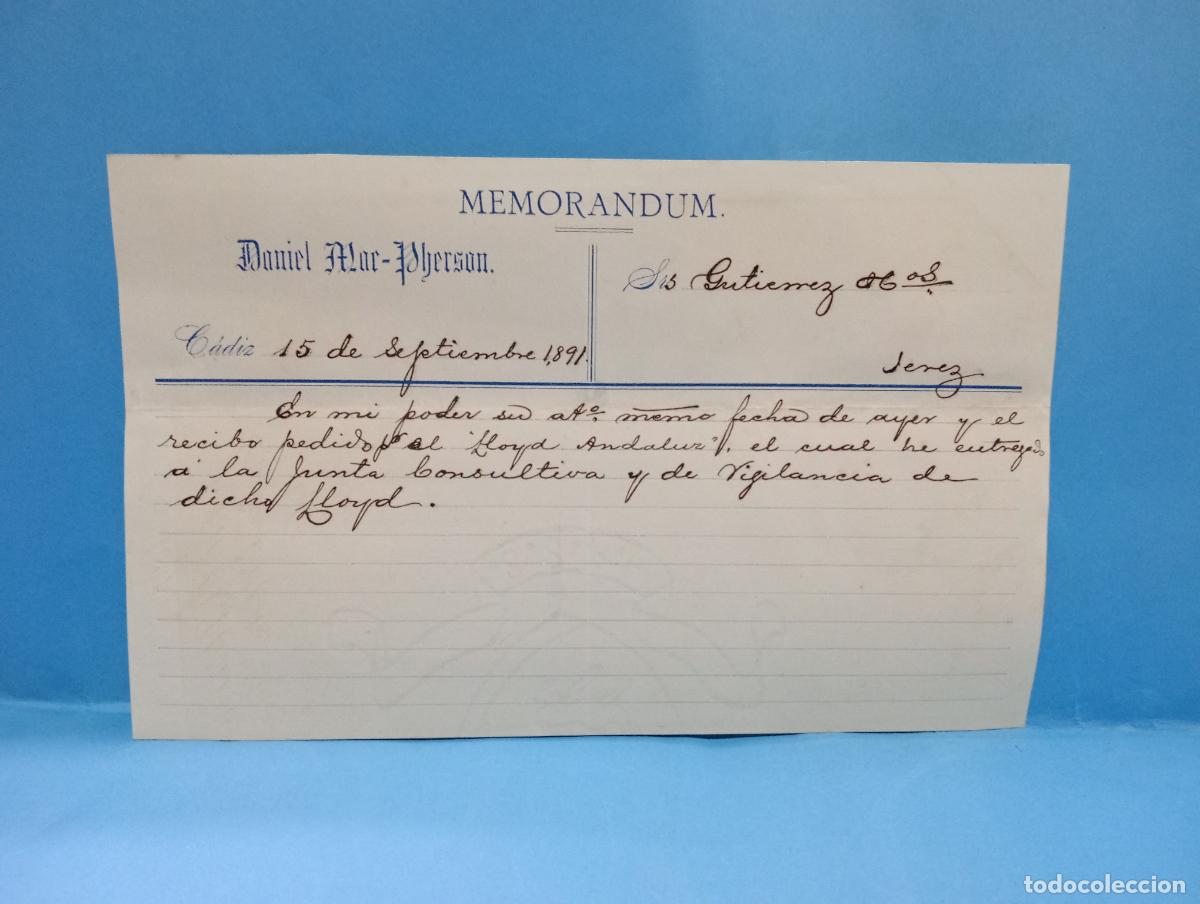 MEMORANDUM.
Daniel Mac-Pherson.
Srs Gutierrez Hos.
Cádiz 15 de Septiembre 1,891.
Jerez
En mi poder su atº. memo fecha de ayer y el
recibo pedido pr el "Lloyd Andaluz", el cual he entregado
á la Junta Consultiva y de Vigilancia de
dicho Lloyd.
todocoleccion